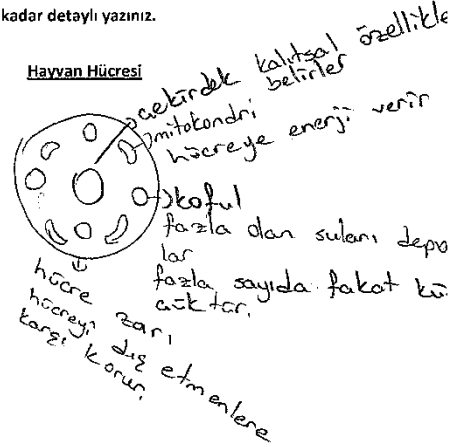 kadar detaylı yazınız.
Hayvan Hücresi
çekirdek kalıtsal özellikle
belirler
mitokondri
hücreye enerji verir
koful
fazla olan suları depo
lar
fazla sayıda fakat kü
çüktür.
hücre zarı
hücreyi dış etmenlere
karşı korur.